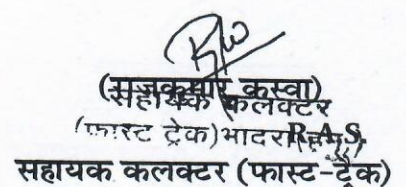 (राजकुमार कस्वा)
सहायक कलक्टर
(फास्ट ट्रेक) भादरा R.A.S.
सहायक कलक्टर (फास्ट-ट्रैक)